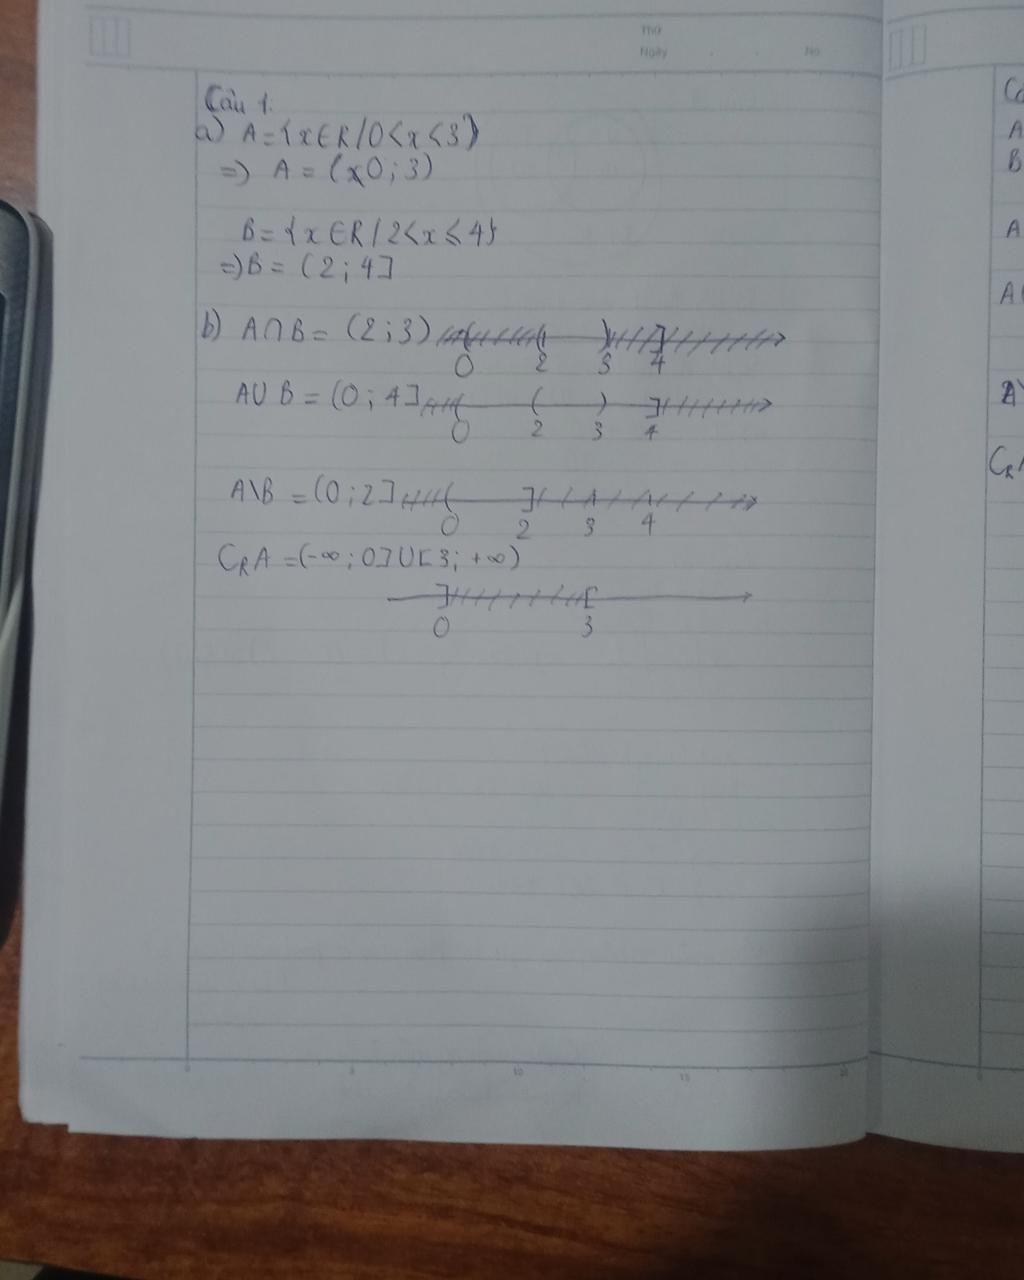 Thứ
Ngày No
Câu 1:
a) A={x∈R/0<x<3}
=) A = (0;3)
B={x∈R/2<x≤4}
=)B = (2;4]
b) A∩B= (2;3)
0 2 3 4
A∪B=(0;4]
0 2 3 4
A\B =(0;2]
0 2 3 4
CRA =(-∞;0]∪[3;+∞)
0 3
5 10 15 20
A
B
A
A
CR